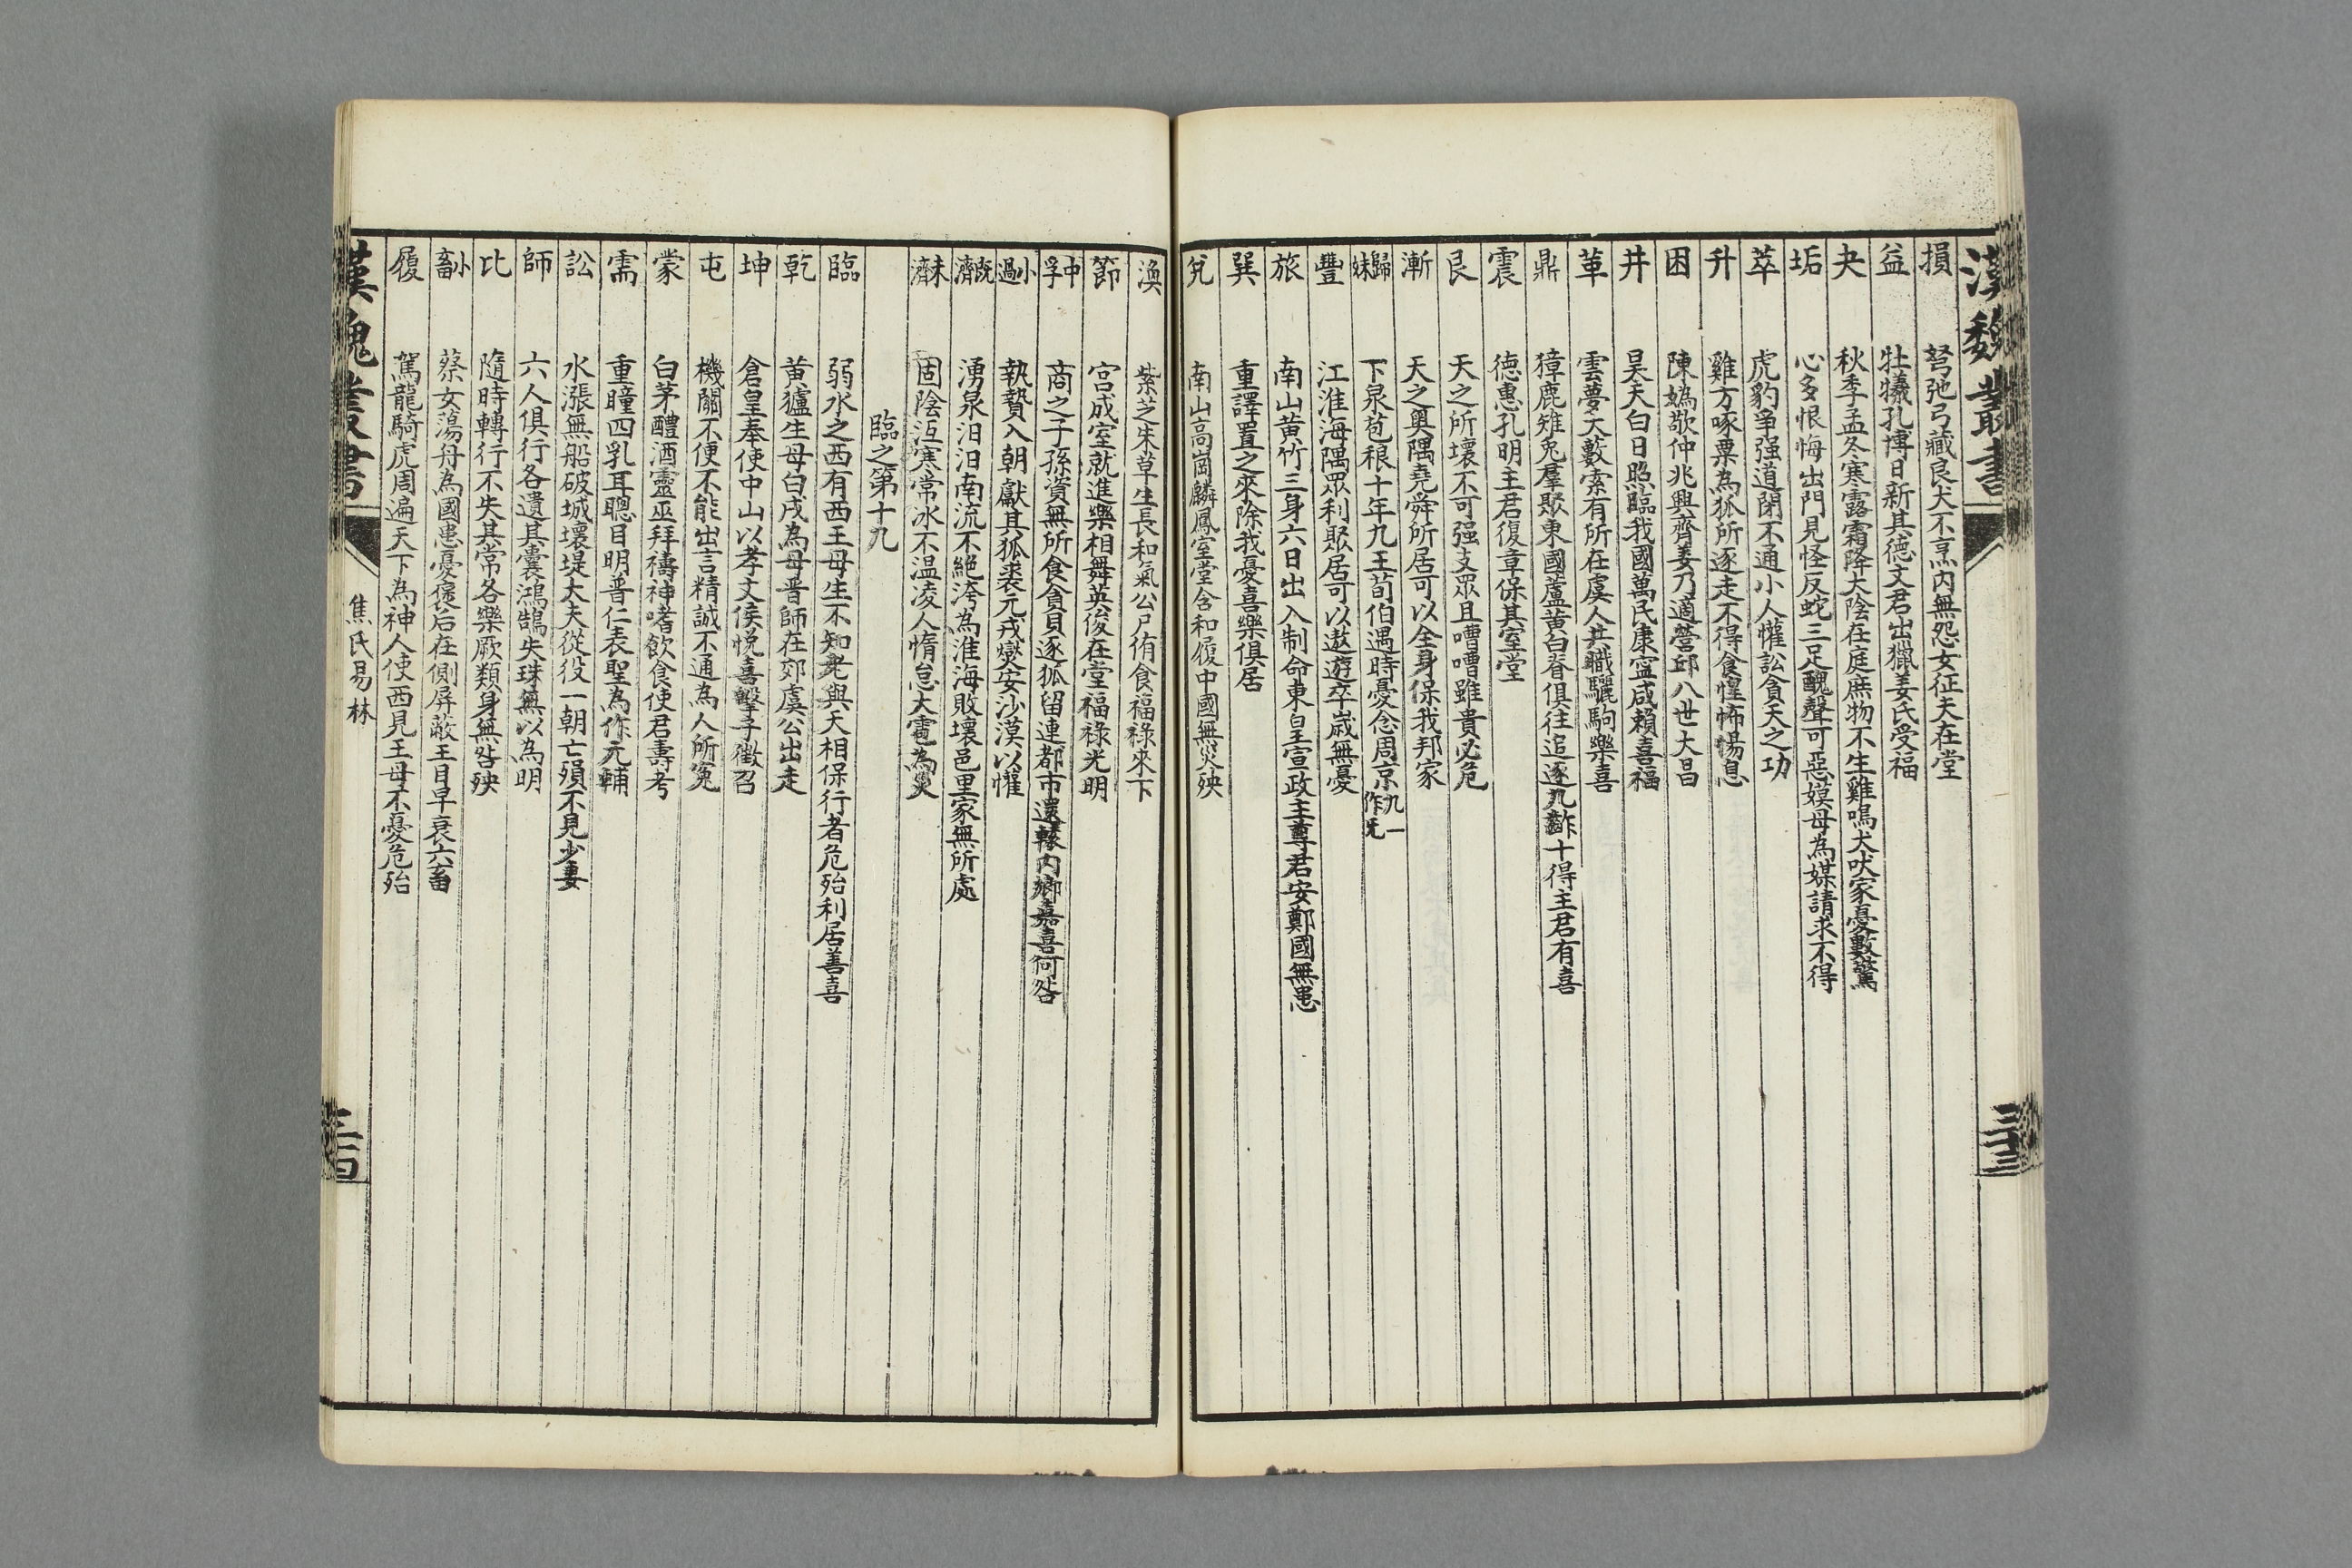 漢魏叢書
三十三
損 弩弛弓藏良犬不烹內無怨女征夫在堂
益 牡犧孔博日新其德文君出獵姜氏受福
夬 秋季孟冬寒露霜降大陰在庭庶物不生雞鳴犬吠家憂數驚
垢 心多恨悔出門見怪反蛇三足醜聲可惡嫫母為媒請求不得
萃 虎豹爭强道閉不通小人讙訟貪天之功
升 雞方啄粟為狐所逐走不得食惶怖惕息
困 陳媯敬仲兆興齊姜乃適營邱八世大昌
井 昊天白日照臨我國萬民康寧咸賴喜福
革 雲夢大藪索有所在虞人共職驪駒樂喜
鼎 獐鹿雉兔羣聚東國蘆黃白脊俱往追逐九齚十得主君有喜
震 德惠孔明主君復章保其室堂
艮 天之所壞不可强支眾且嘈嘈雖貴必危
漸 天之奧隅堯舜所居可以全身保我邦家
歸妹 下泉苞稂十年九王荀伯遇時憂念周京九一作无
豐 江淮海隅眾利聚居可以遨遊卒歲無憂
旅 南山黃竹三身六日出入制命東皇宣政主尊君安鄭國無患
巽 重譯置之來除我憂喜樂俱居
兌 南山高崗麟鳳室堂含和履中國無災殃
渙 紫芝朱草生長和氣公尸侑食福祿來下
節 宮成室就進樂相舞英俊在堂福祿光明
中孚 商之子孫資無所食貪貝逐狐留連都市還轅內鄉嘉喜何咎
小過 執贄入朝獻其狐裘元戎燮安沙漠以懽
既濟 湧泉汩汩南流不絕洿為淮海敗壞邑里家無所處
未濟 固陰沍寒常冰不温凌人惰怠大雹為災
臨之第十九
臨 弱水之西有西王母生不知老與天相保行者危殆利居善喜
乾 黃獹生母白戌為母晋師在郊虞公出走
坤 倉皇奉使中山以孝文侯悅喜擊子徵召
屯 機關不便不能出言精誠不通為人所冤
蒙 白茅醴酒靈巫拜禱神嗜飲食使君壽考
需 重瞳四乳耳聰目明普仁表聖為作元輔
訟 水漲無船破城壞堤大夫從役一朝亡殞不見少妻
師 六人俱行各遺其囊鴻鵠失珠無以為明
比 隨時轉行不失其常各樂厥類身無咎殃
小畜 蔡女蕩舟為國患憂褒后在側屏蔽王目早衰六畜
履 駕龍騎虎周遍天下為神人使西見王母不憂危殆
漢魏叢書
焦氏易林
三十四